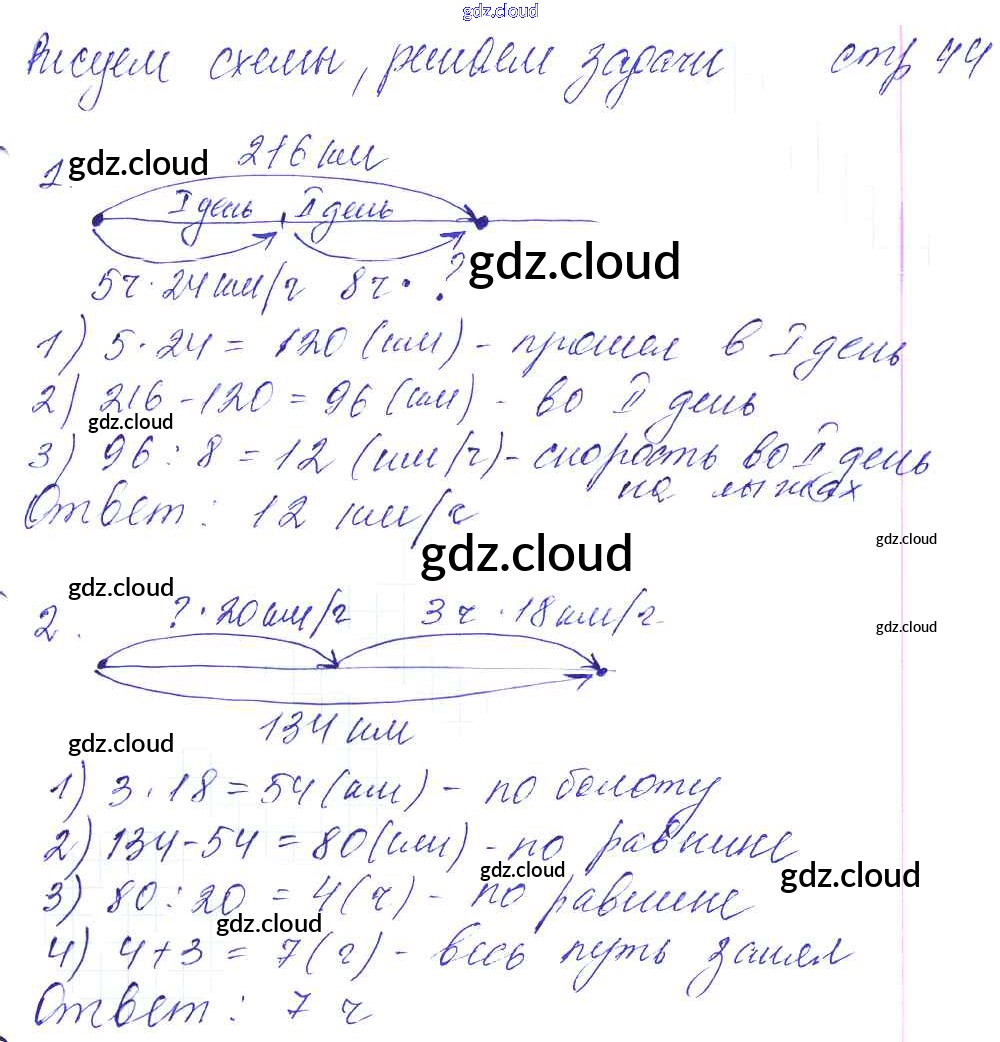 gdz.cloud
Рисуем схемы, решаем задачи стр 44
1. gdz.cloud 216 км
I день II день
gdz.cloud
5ч · 24 км/ч 8ч · ?
1) 5 · 24 = 120 (км) - прошел в I день
2) 216 - 120 = 96 (км) - во II день
gdz.cloud
3) 96 : 8 = 12 (км/ч) - скорость во II день
на лыжах
Ответ: 12 км/ч
gdz.cloud
gdz.cloud
gdz.cloud
2. ? · 20 км/ч 3 ч · 18 км/ч
gdz.cloud
134 км
gdz.cloud
1) 3 · 18 = 54 (км) - по болоту
2) 134 - 54 = 80 (км) - по равнине
gdz.cloud
gdz.cloud
3) 80 : 20 = 4 (ч) - по равнине
gdz.cloud
4) 4 + 3 = 7 (ч) - весь путь занял
Ответ: 7 ч